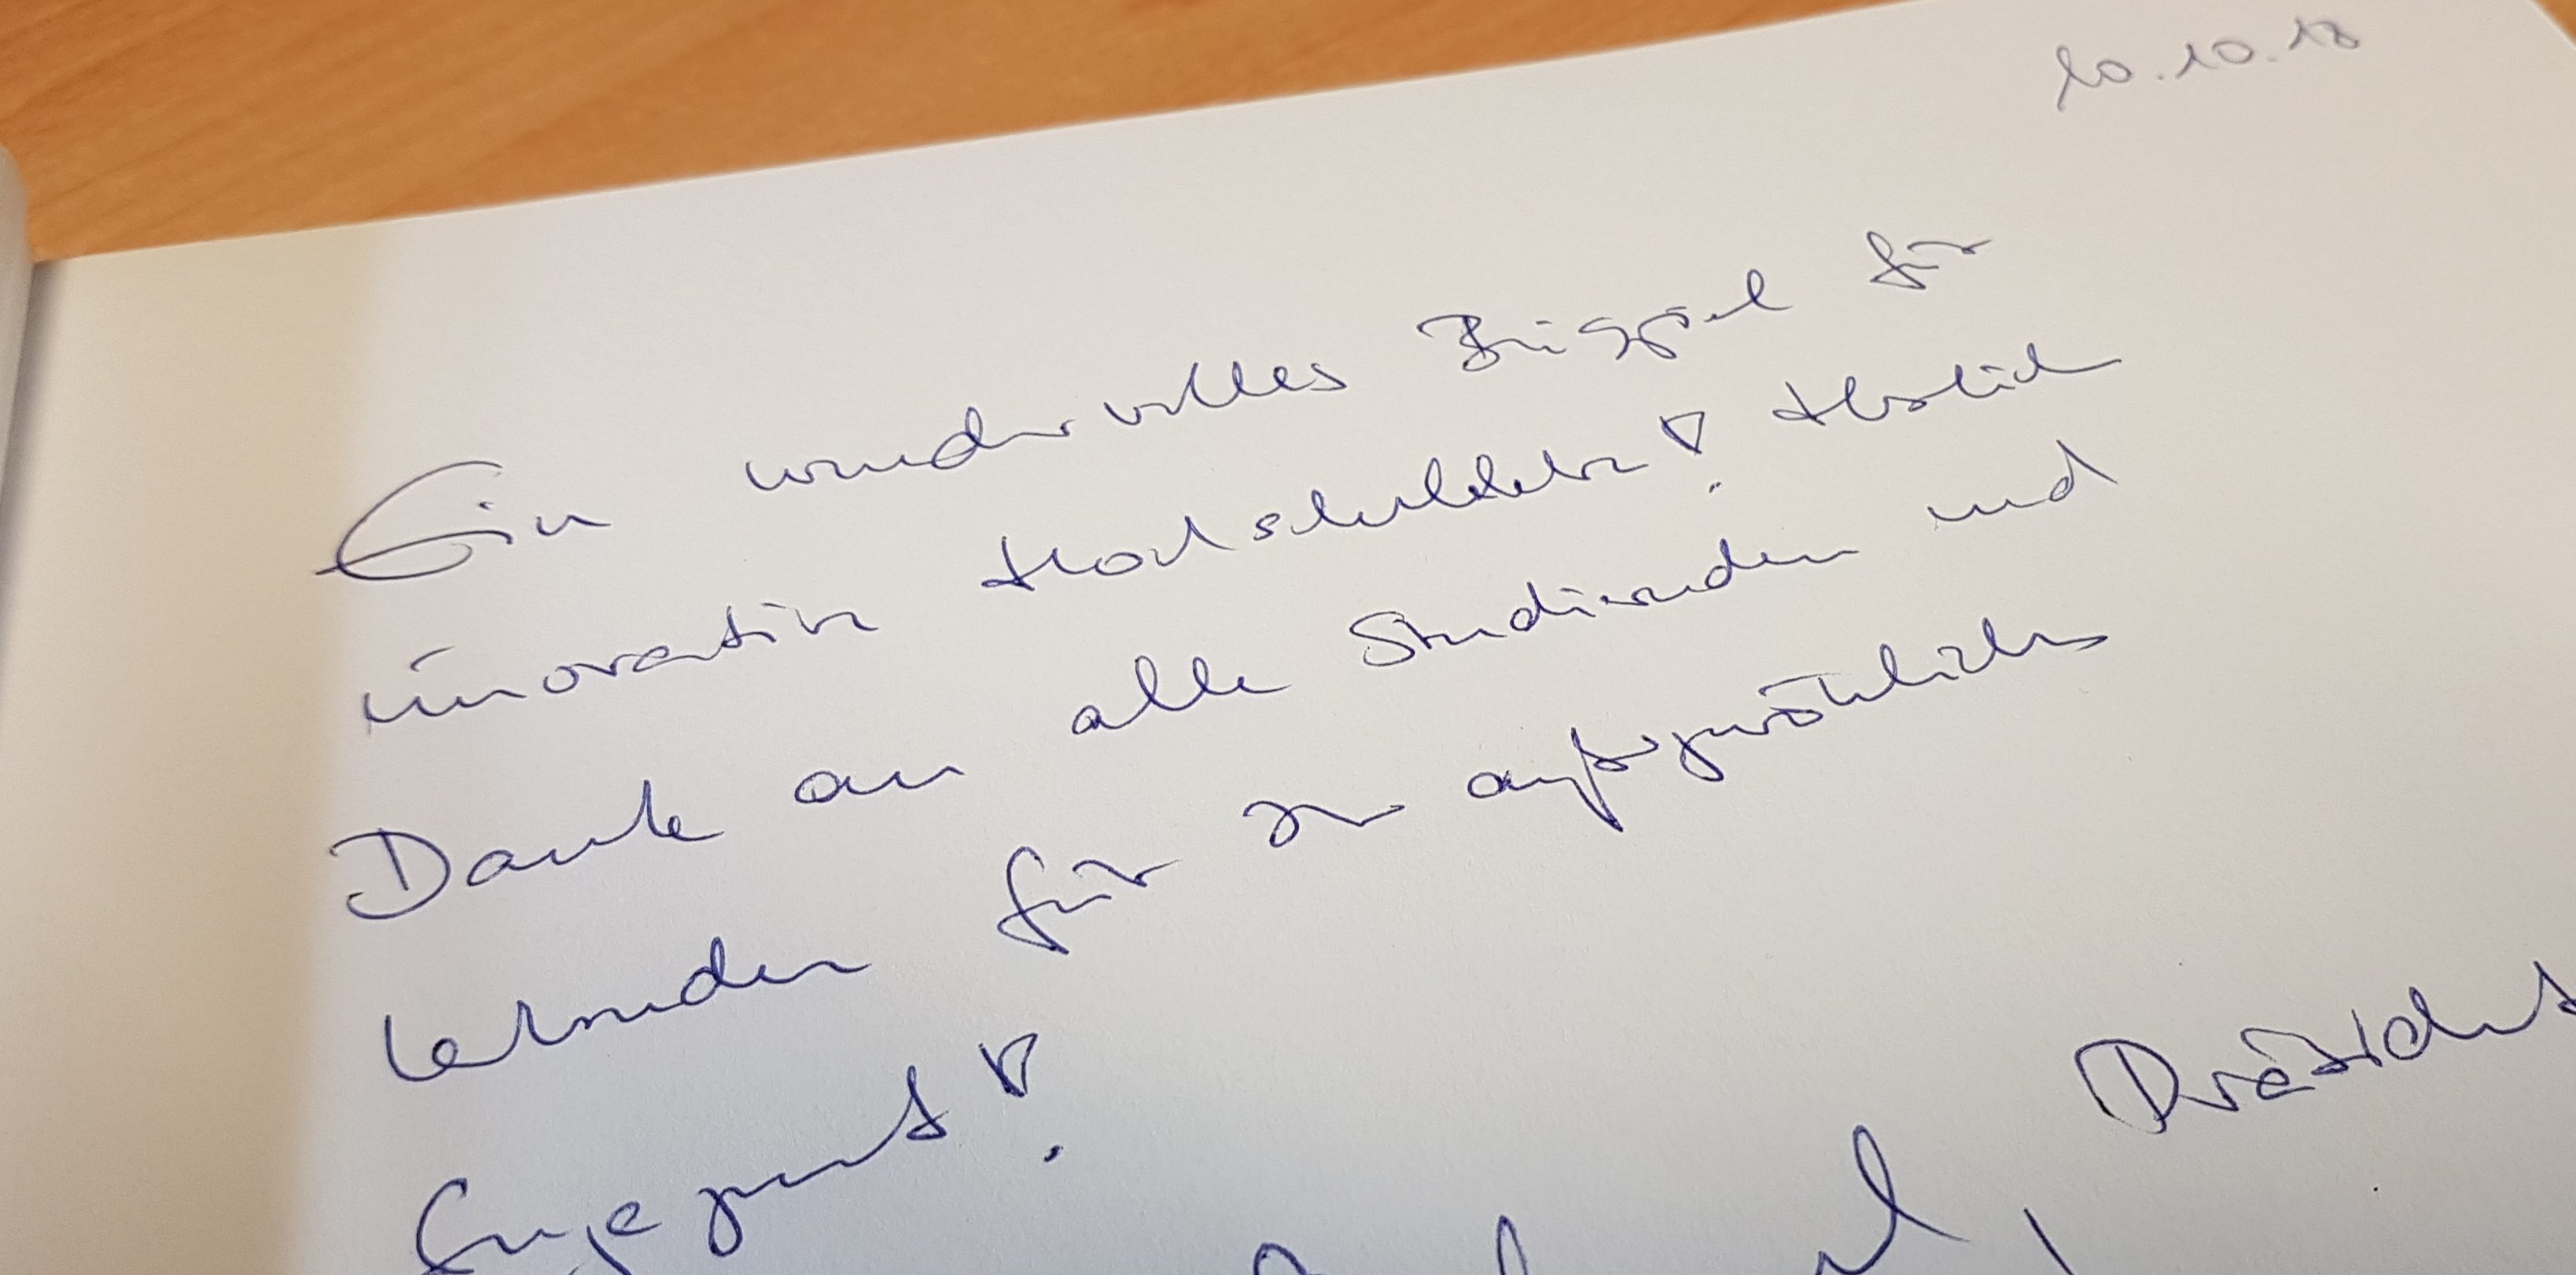 10.10.18
Ein wundervolles Beispiel für
innovative Hochschullehre! Herzlichen
Dank an alle Studierenden und
Lehrenden für ihr außergewöhnliches
Engagement!
Präsident